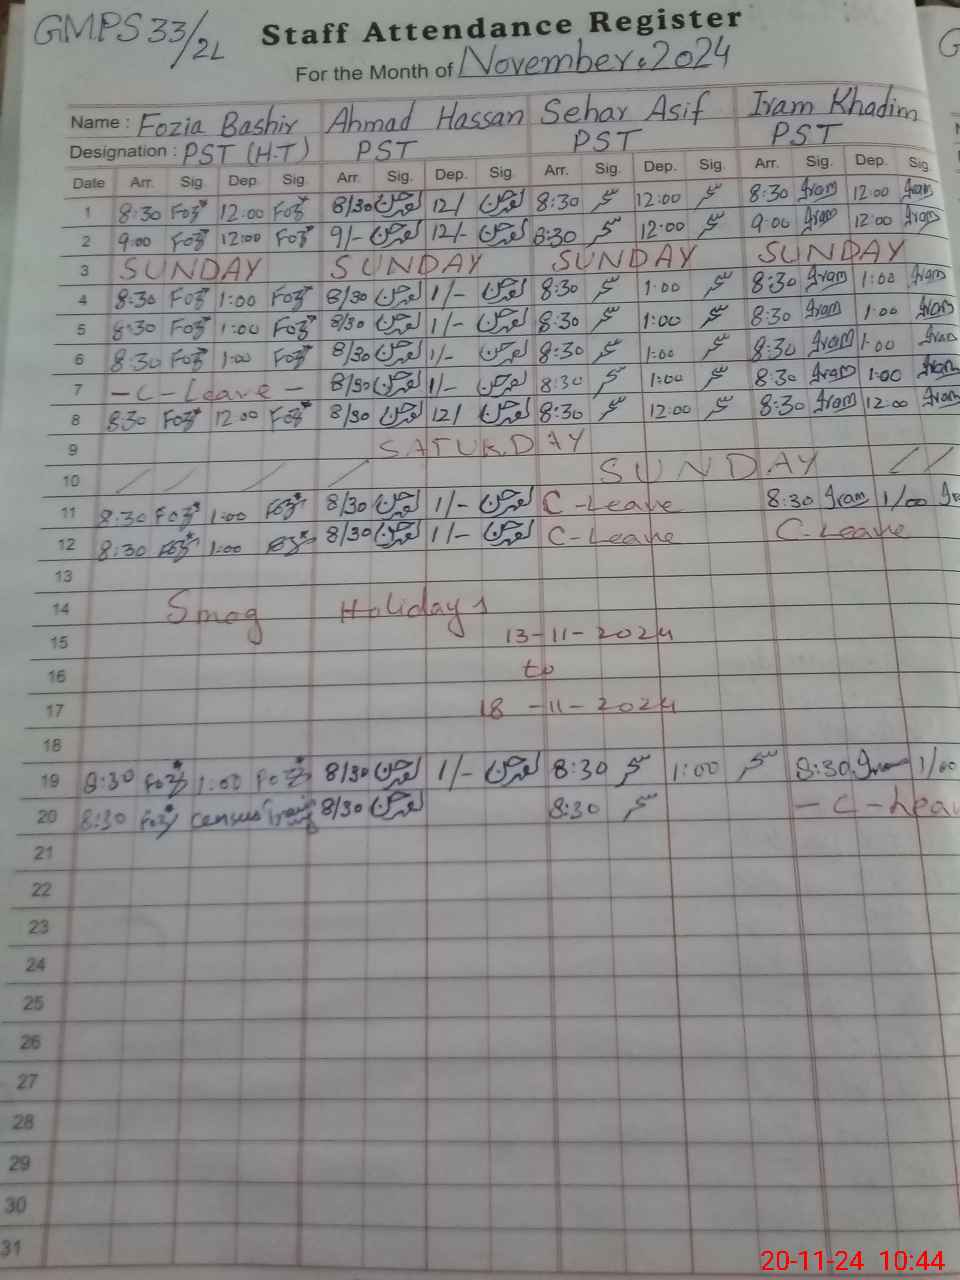 GMPS 33/2L
Staff Attendance Register
For the Month of November, 2024
Name : Fozia Bashir Ahmad Hassan Sehar Asif Iram Khadim
Designation : PST (H.T) PST PST PST
Date Arr. Sig. Dep. Sig. Arr. Sig. Dep. Sig. Arr. Sig. Dep. Sig. Arr. Sig. Dep. Sig.
1 8:30 Foz 12:00 Foz 8/30 12/ 8:30 سحر 12:00 سحر 8:30 Iram 12:00 Iram
2 9:00 Foz 12:00 Foz 9/- 12/- 8:30 سحر 12:00 سحر 9:00 Iram 12:00 Iram
3 SUNDAY SUNDAY SUNDAY SUNDAY
4 8:30 Foz 1:00 Foz 8/30 1/- 8:30 سحر 1:00 سحر 8:30 Iram 1:00 Iram
5 8:30 Foz 1:00 Foz 8/30 1/- 8:30 سحر 1:00 سحر 8:30 Iram 1:00 Iram
6 8:30 Foz 1:00 Foz 8/30 1/- 8:30 سحر 1:00 سحر 8:30 Iram 1:00 Iram
7 -C-Leave- 8/30 1/- 8:30 سحر 1:00 سحر 8:30 Iram 1:00 Iram
8 8:30 Foz 12:00 Foz 8/30 12/ 8:30 سحر 12:00 سحر 8:30 Iram 12:00 Iram
9 SATURDAY
10 SUNDAY
11 8:30 Foz 1:00 Foz 8/30 1/- C-Leave 8:30 Iram 1/00
12 8:30 Foz 1:00 Foz 8/30 1/- C-Leave C-Leave
13
14 Smog Holidays
15 13-11-2024
16 to
17 18-11-2024
18
19 8:30 Foz 1:00 Foz 8/30 1/- 8:30 سحر 1:00 سحر 8:30 Iram 1/00
20 8:30 Foz census 8/30 8:30 سحر -C-Leav
21
22
23
24
25
26
27
28
29
30
31
20-11-24 10:44